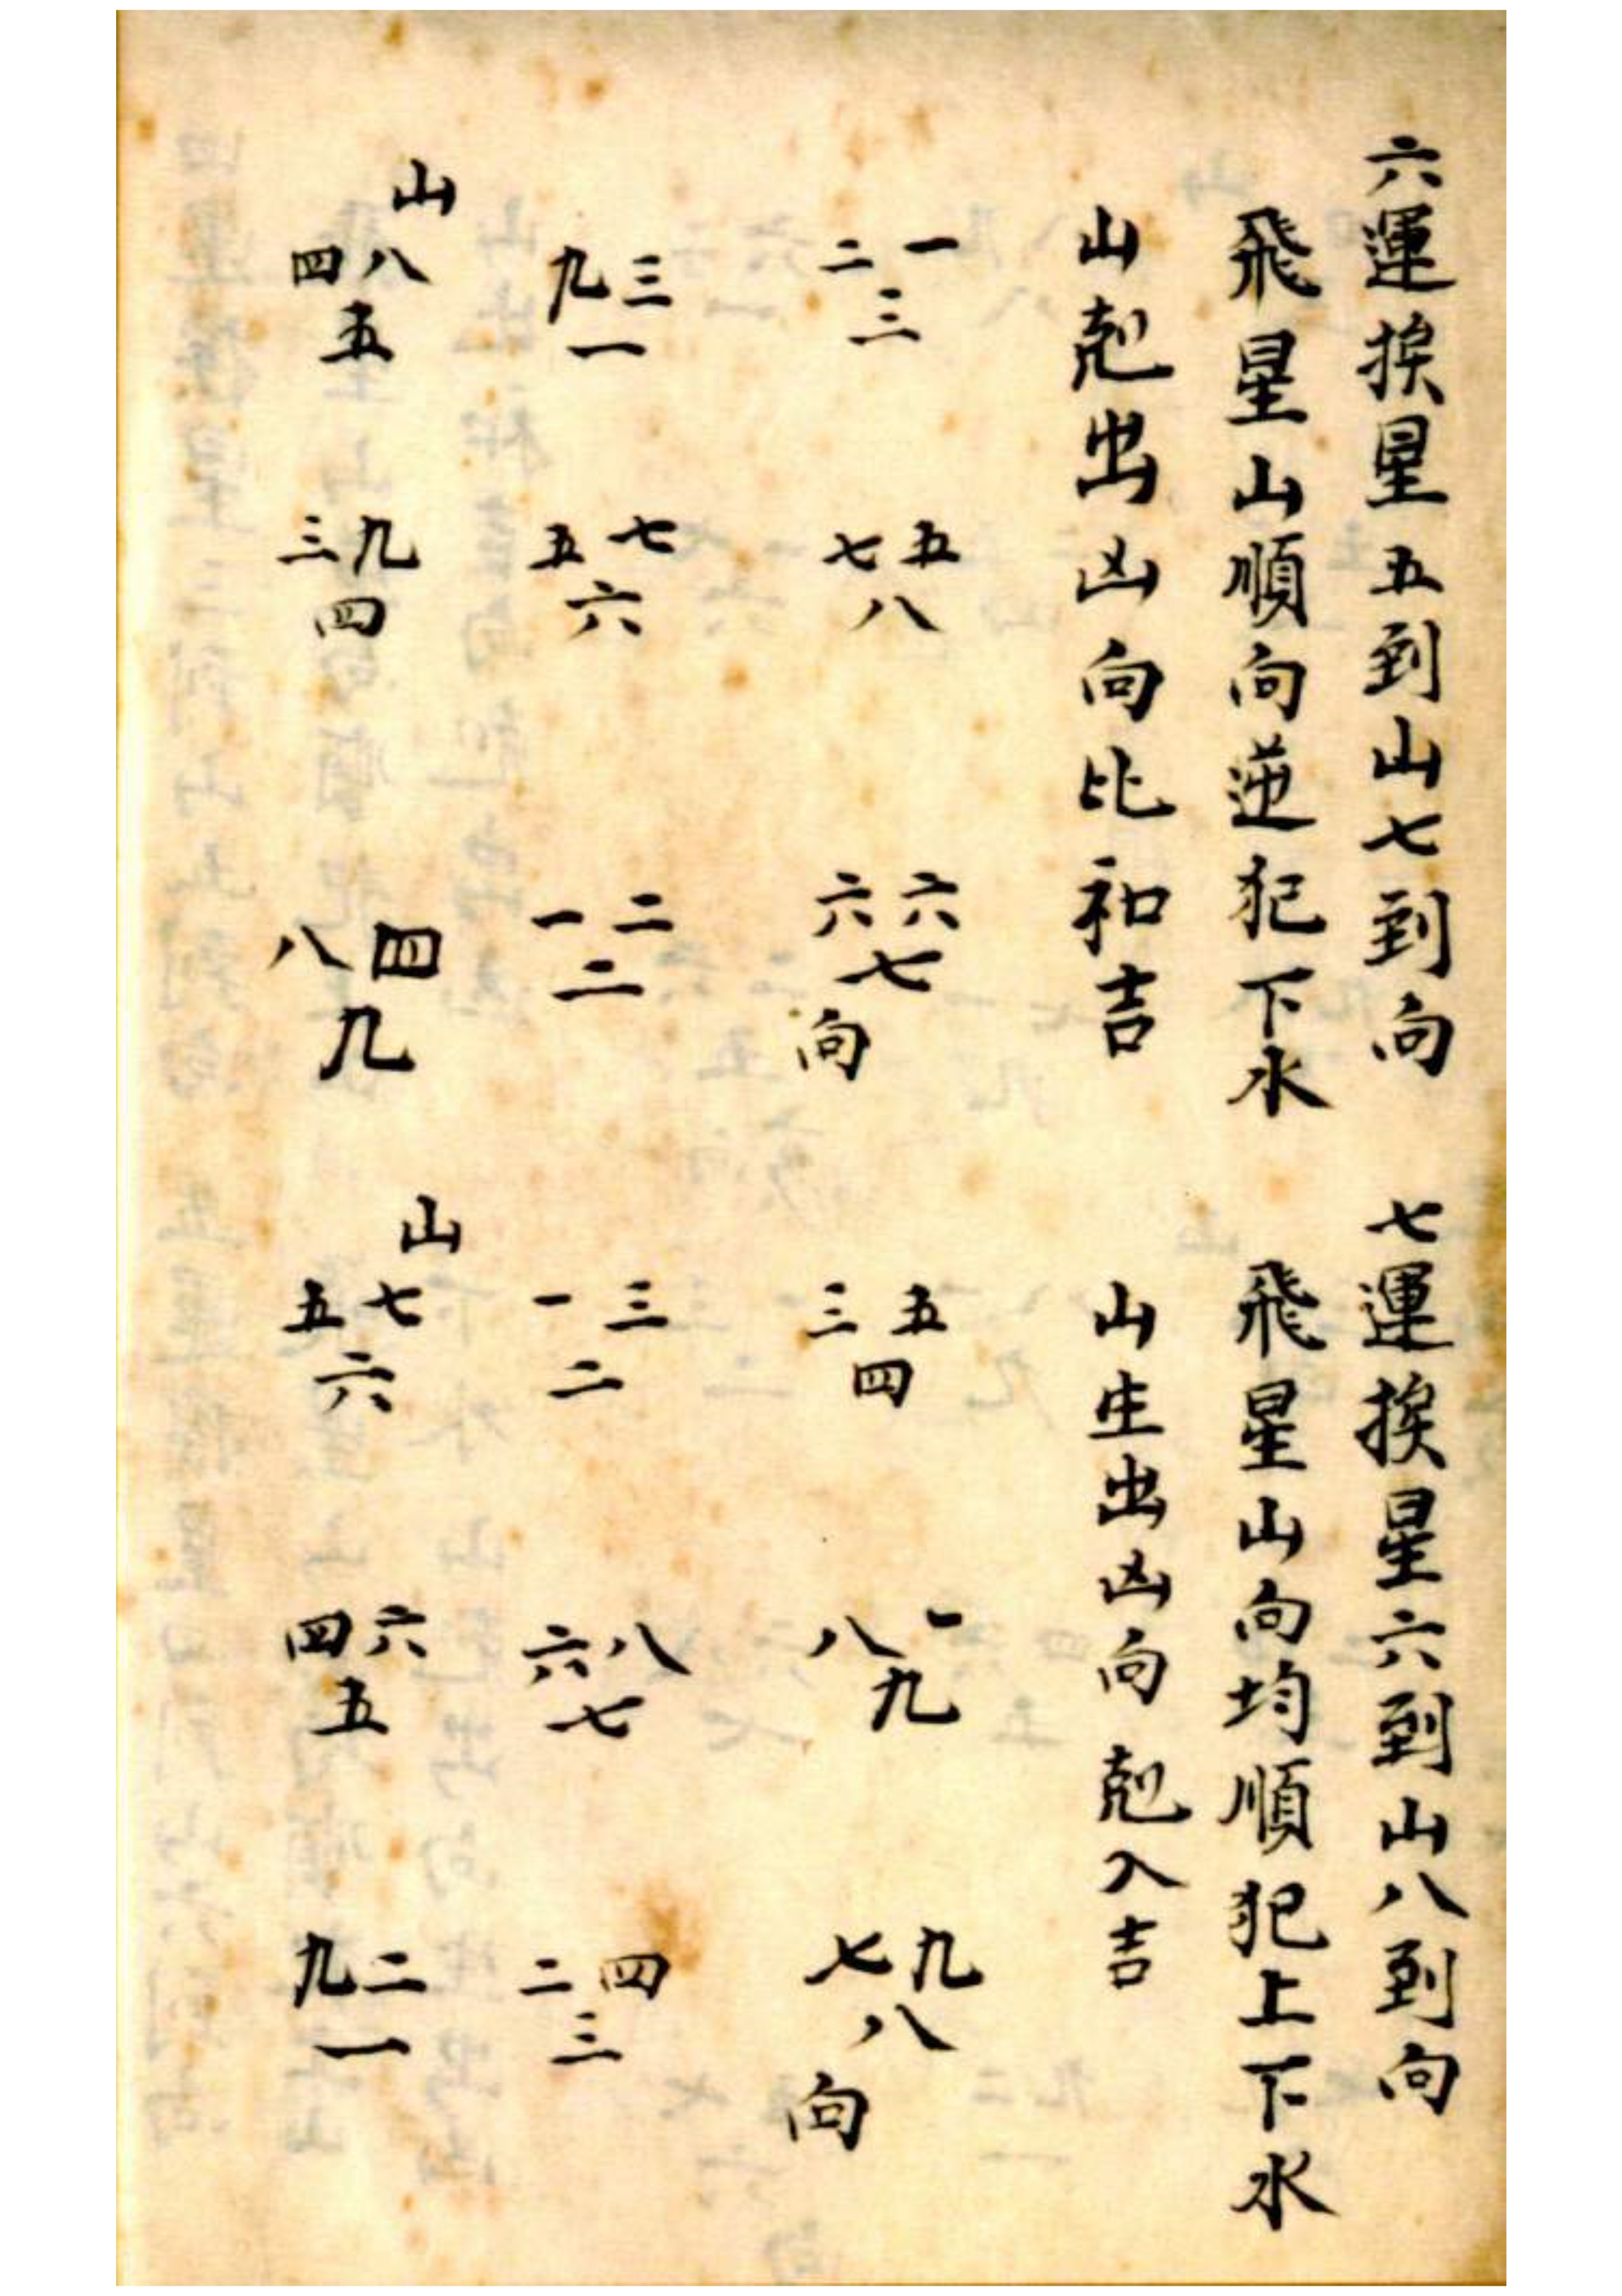 六運挨星五到山七到向
飛星山順向逆犯下水
山剋出凶向比和吉
一二
三
五七
八
六六
七
向
三九
一
七五
六
二一
二
山
八四
五
九三
四
四八
九
七運挨星六到山八到向
飛星山向均順犯上下水
山生出凶向剋入吉
五三
四
一八
九
九七
八
向
三一
二
八六
七
四二
三
山
七五
六
六四
五
二九
一